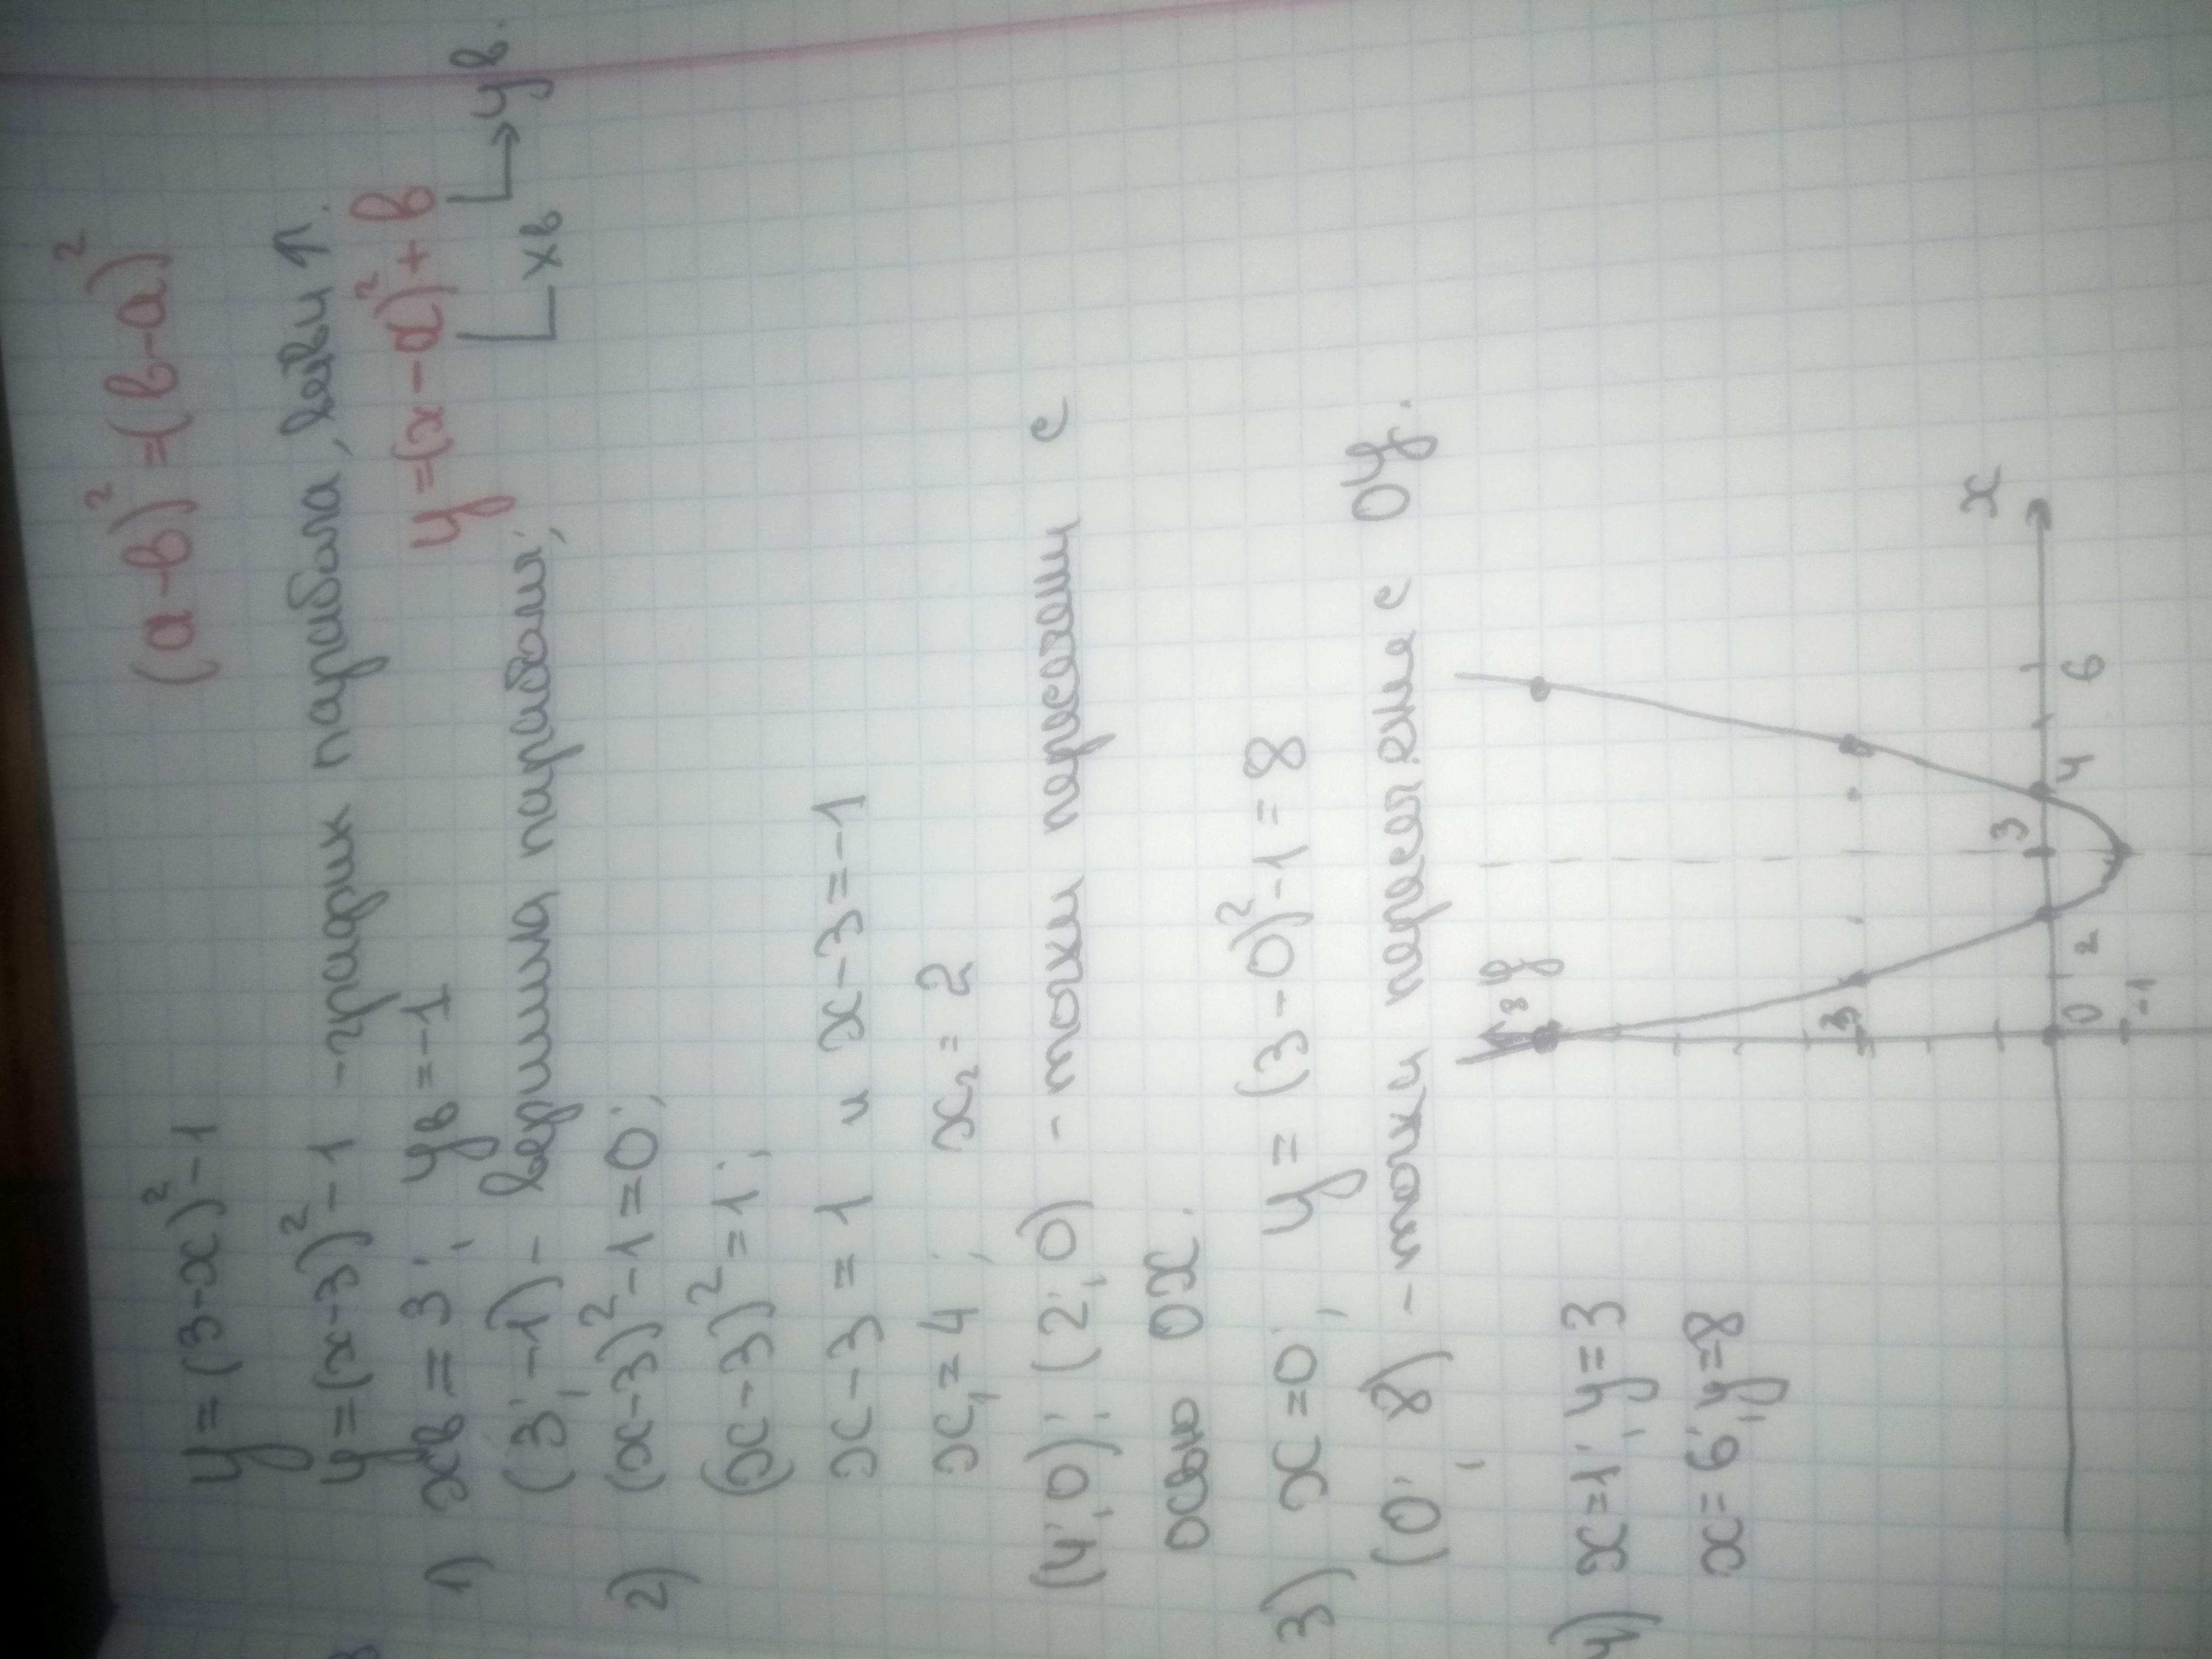 (a-в)²=(в-a)²
y=(3-x)²-1
y=(x-3)²-1 -график парабола, ветви ↑.
y=(x-a)²+в
1) xв=3; yв=-1
xв
yв.
(3;-1)- вершина параболы;
2) (x-3)²-1=0;
(x-3)²=1;
x-3=1 и x-3=-1
x₁=4; x₂=2
(4;0); (2;0) -точки пересечен с
осью OX.
3) x=0; y=(3-0)²-1=8
(0; 8) -точки пересечение с OY.
4) x=1; y=3
x=6; y=8
8 y
3
3
0 2 4 6 x
-1